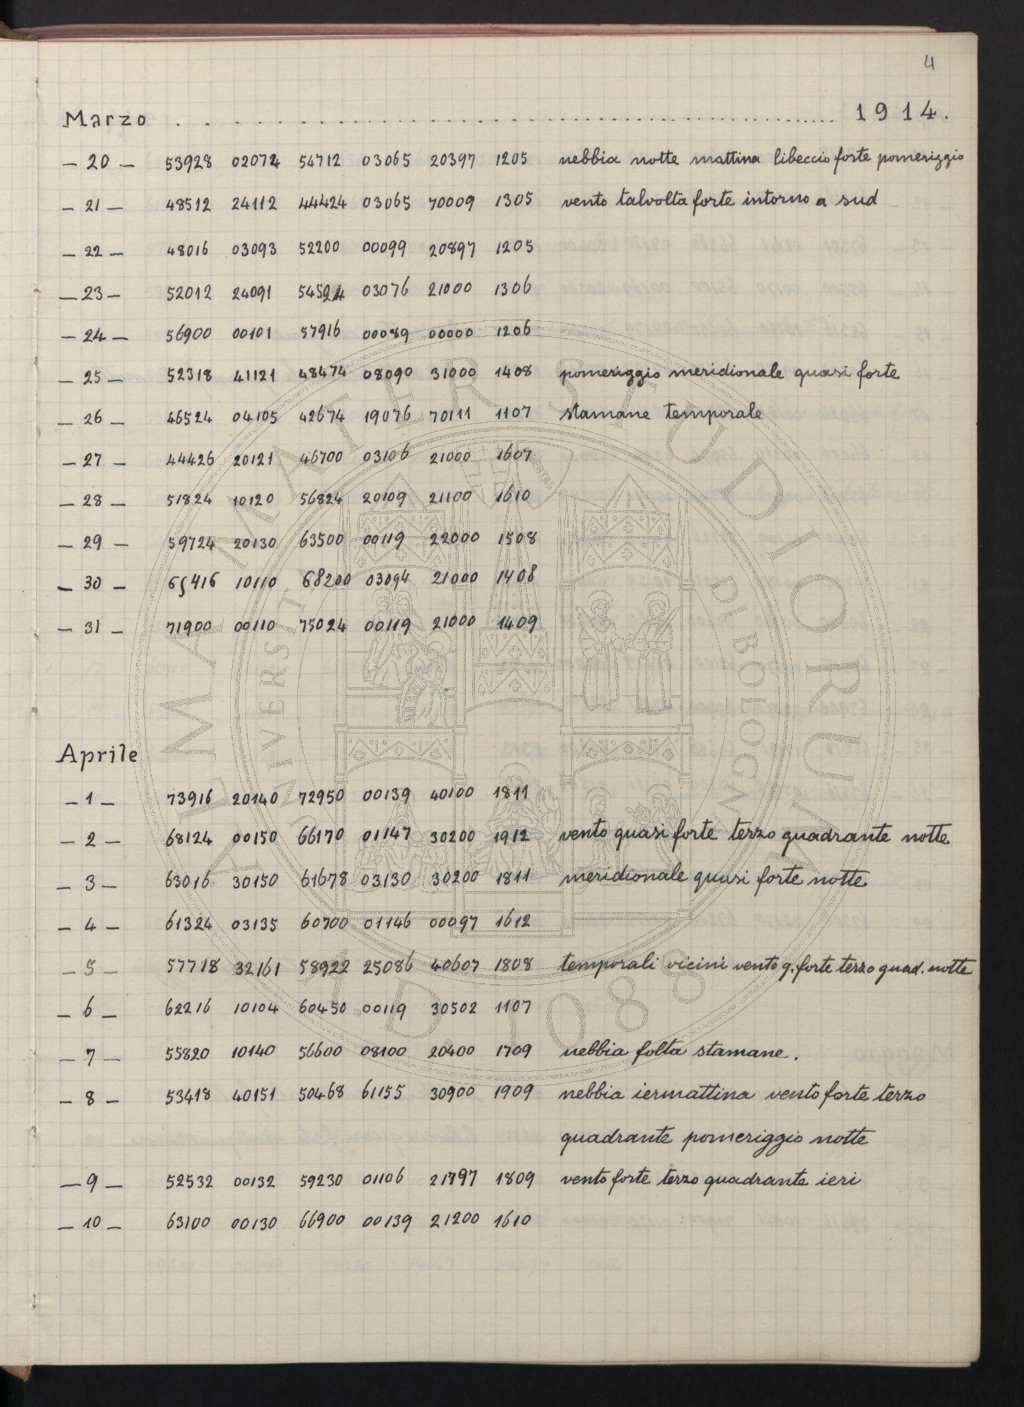 4
Marzo ........................................ 1914.
— 20 — 53928 02072 54712 03065 20397 1205 nebbia notte mattina libeccio forte pomeriggio
— 21 — 48512 24112 44424 03065 70009 1305 vento talvolta forte intorno a sud
— 22 — 48016 03093 52200 00099 20897 1205
— 23 — 52012 24091 54524 03076 21000 1306
— 24 — 56900 00101 57916 00089 00000 1206
— 25 — 52318 41121 48474 08090 31000 1408 pomeriggio meridionale quasi forte
— 26 — 46524 04105 42674 19076 70111 1107 stamane temporale
— 27 — 44426 20121 46700 03106 21000 1607
— 28 — 51824 10120 56824 20109 21100 1610
— 29 — 59724 20130 63500 00119 22000 1508
— 30 — 65416 10110 68200 03094 21000 1408
— 31 — 71900 00110 75024 00119 21000 1409
Aprile
— 1 — 73916 20140 72950 00139 40100 1811
— 2 — 68124 00150 66170 01147 30200 1912 vento quasi forte terzo quadrante notte
— 3 — 63016 30150 61678 03130 30200 1811 meridionale quasi forte notte
— 4 — 61324 03135 60700 01146 00097 1612
— 5 — 57718 32161 58922 25086 40607 1808 temporali vicini vento q. forte terzo quad. notte
— 6 — 62216 10104 60450 00119 30502 1107
— 7 — 55820 10140 56600 08100 20400 1709 nebbia folta stamane.
— 8 — 53418 40151 50468 61155 30900 1909 nebbia iermattina vento forte terzo
quadrante pomeriggio notte
— 9 — 52532 00132 59230 01106 21797 1809 vento forte terzo quadrante ieri
— 10 — 63100 00130 66900 00139 21200 1610
ALMA MATER STUDIORUM
UNIVERSITÀ DI BOLOGNA
A.D. 1088